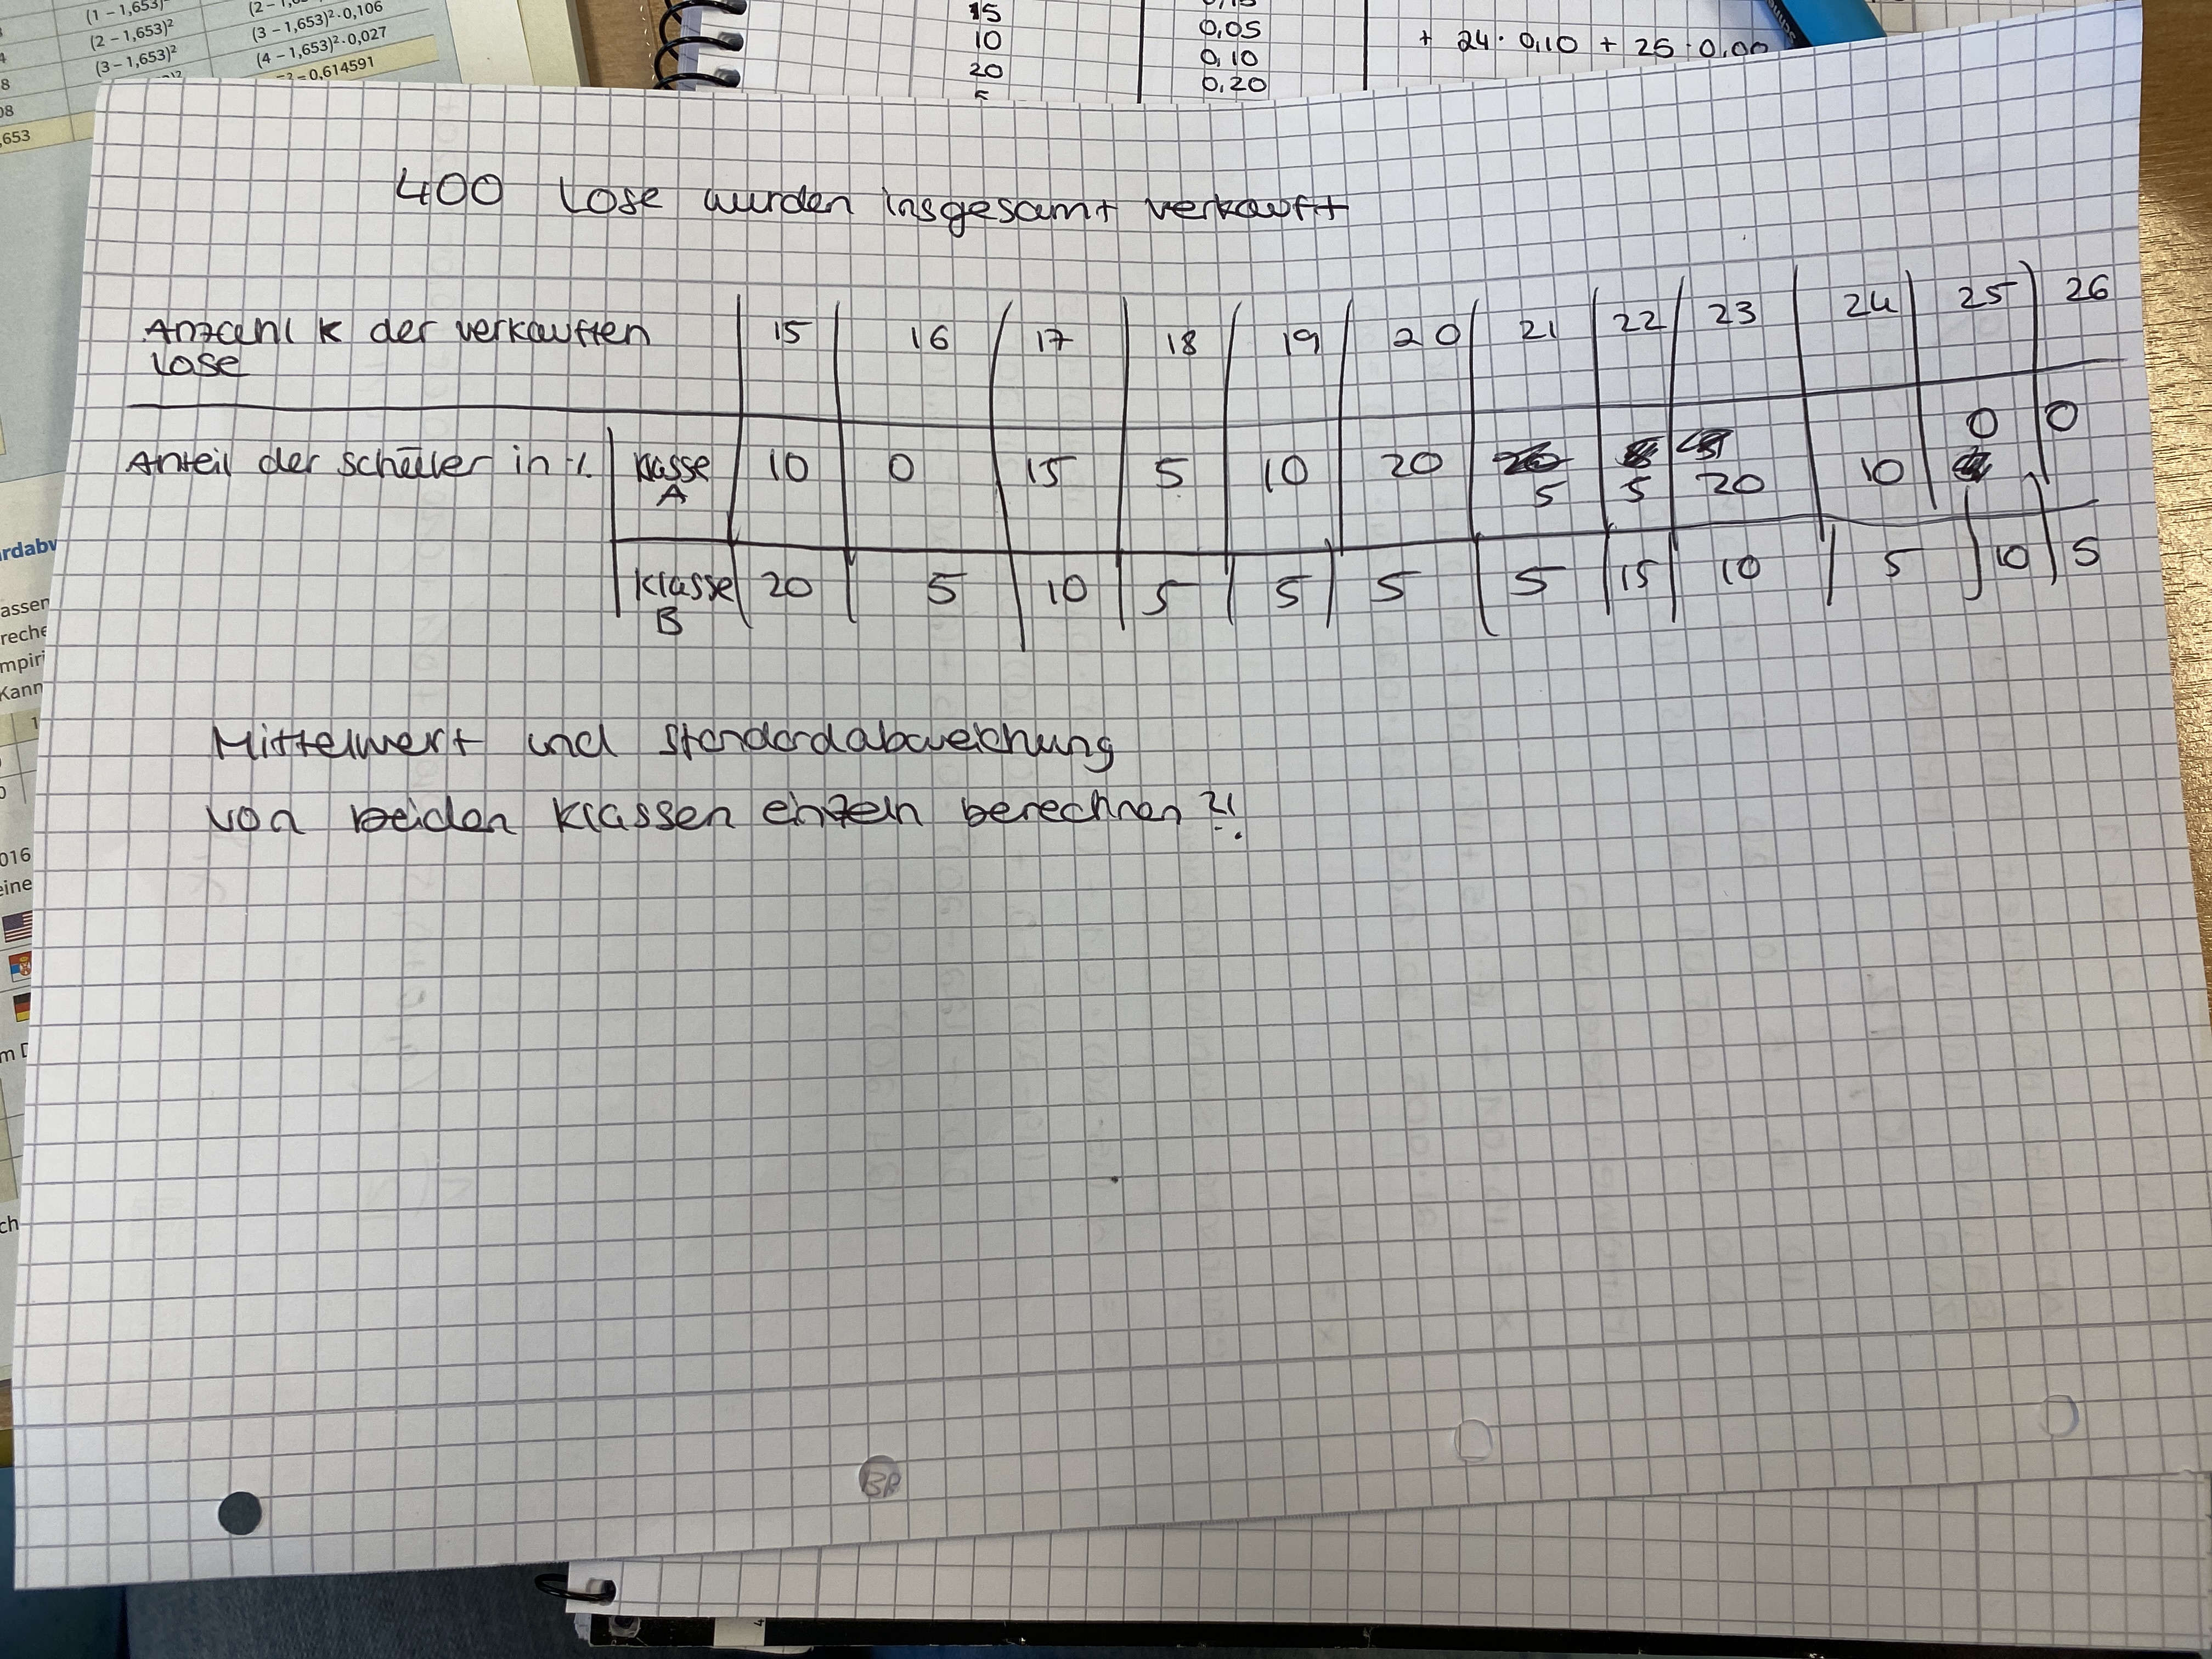 (1 – 1,653)²
(2 – 1,653)²
(3 – 1,653)²
(3 – 1,653)²·0,106
(4 – 1,653)²·0,027
0,614591
,653
15
10
20
0,05
0,10
0,20
+ 24 · 0,10 + 25 · 0,00
400 Lose wurden insgesamt verkauft
Anzahl k der verkauften 15 16 17 18 19 20 21 22 23 24 25 26
Lose
0 0
Anteil der schüler in % Klasse 10 0 15 5 10 20 5 5 20 10
A
Klasse 20 5 10 5 5 5 5 15 10 5 10 5
B
Mittelwert und Standardabweichung
von beiden Klassen einzeln berechnen ?!
rdabv
assen
reche
mpiri
Kann
016
eine
m D
ch
BR